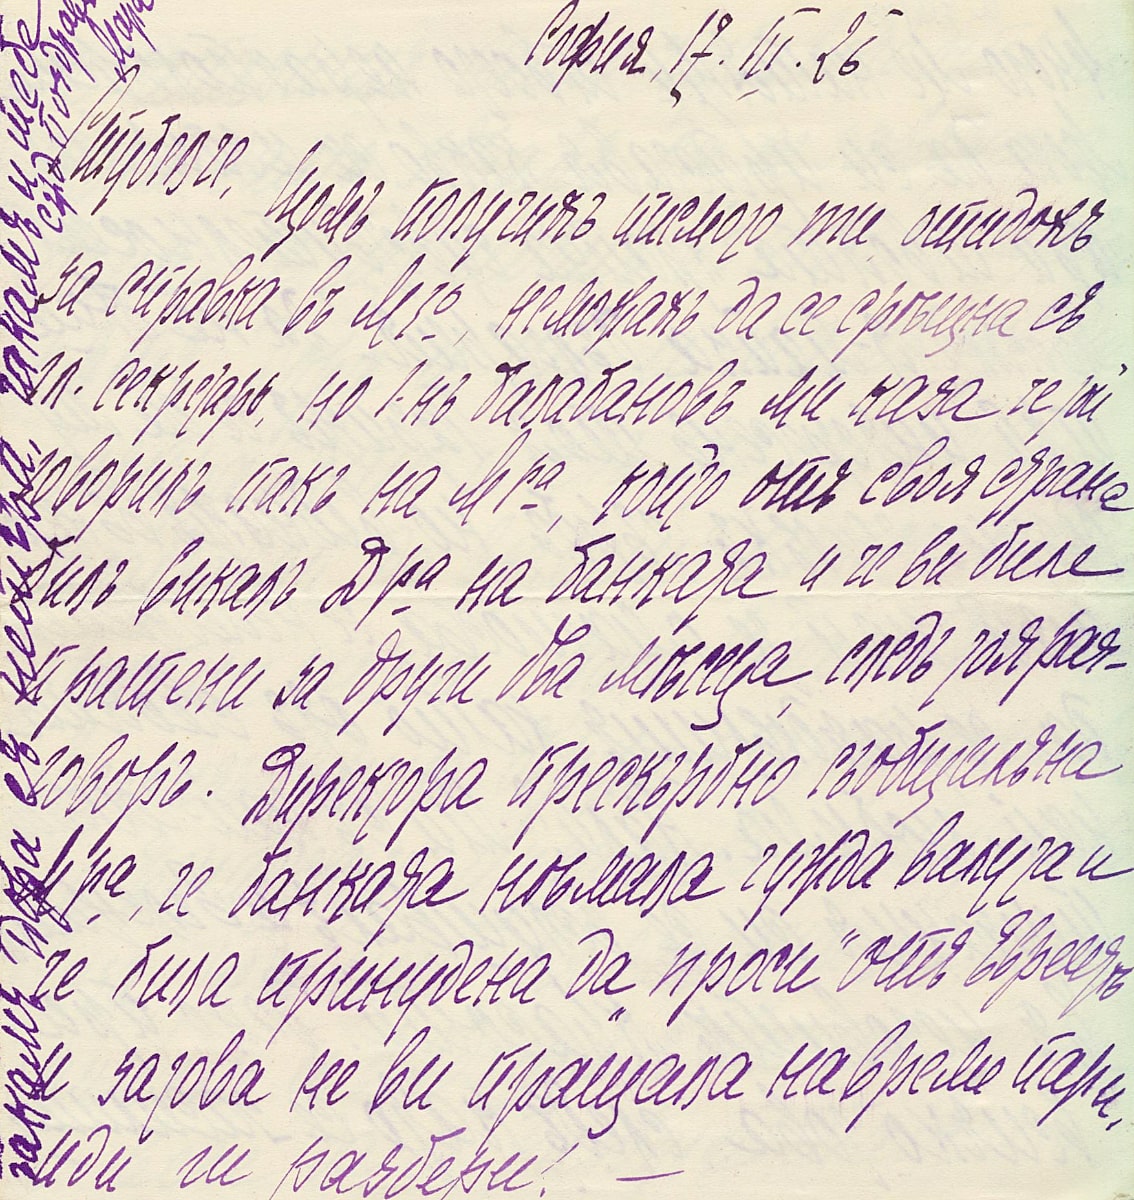 София, 17. III. 26
Щомъ получихъ писмото ти, отидохъ
за справка въ М-то, неможахъ да се срѣщна съ
гл. секретарь, но г-нъ Балабановъ ми каза че той
говорилъ пакъ на М-ра, който отъ своя страна
билъ викалъ Д-ра на банката и че ви били
пратени за други два мѣсеца, следъ тоя раз-
говоръ. Директора прескърбно съобщилъ на
М-ра, че банката нѣмала чужда валута и
че била принудена да „проси“ отъ евреитѣ
и затова не ви пращала навреме пари,
иди ги разбери! —
чакамъ и тебе
Поздрави